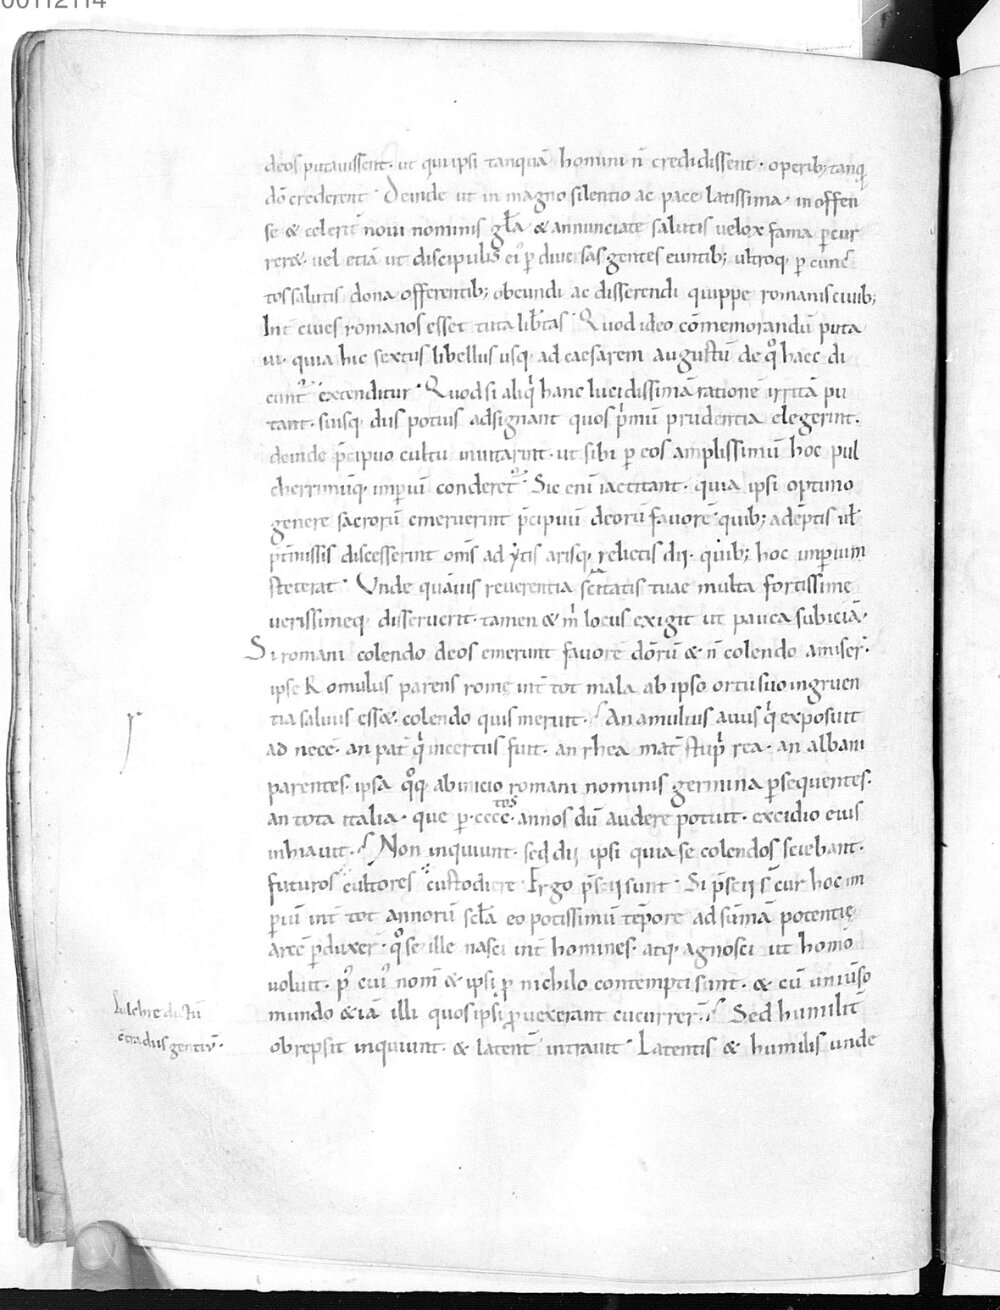 00112114
deos putauissent· ut qui ipsi tanquā homini n̄ credidissent · operib; tanq̄
dō crederent · Deinde ut in magno silentio ac pace latissima· inoffen
se & celerit̄ noui nominis gl̄a & annunciatę salutis uelox fama p̄cur
rer&· uel etiā ut discipulis ei᾽ ꝑ diuersas gentes euntib; ultroq· ꝑ cunc
tos salutis dona offerentib; obeundi ac disserendi quippe romanis ciuib;
Int̄ ciues romanos esset tuta lib̄tas · Quod ideo cōmemorandū puta
ui· quia hic sextus libellus usq· ad caesarem augustū de qͦ haec di
cunt᷑ extenditur · Quodsi aliqⁱ hanc lucidissimā rationē irritā pu
tant· suisq· diis potius adsignant quos pⁱmū prudentia elegerint·
deinde p̄cipuo cultu inuitarint· ut sibi ꝑ eos amplissimū hoc pul
cherrimūq· imꝑiū conderet᷑ · Sic eni iactitant· quia ipsi optimo
genere sacrorū emeruerint p̄cipuū deorū fauorē· quib; adēptis ul̄
p̄t̄missis discesserint om̄s adytis arisq· relictis dii· quib; hoc imꝑium
steterat · Unde quāuis reuerentia sc̄itatis tuae multa fortissime
uerissimeq· disseruerit· tamen & m̄ locus exigit ut pauca subiciā·
Si romani colendo deos emerunt fauorē dōrū & n̄ colendo amiser̄·
ipse Romulus parens romę int̄ tot mala ab ipso ortu suo ingruen
tia saluus ess&· colendo quis meruit· An amulius auus qⁱ exposuit
ad necē· an pat̄ qⁱ incertus fuit· an rhea mat̄ stupⁱ rea· an albani
parentes· ipsa qͦq· ab inicio romani nominis germina ꝑsequentes·
an tota italia· que ꝑ·cccc·tos annos dū audere potuit· excidio eius
inhiauit· Non inquiunt· sed dii ipsi quia se colendos sciebant·
futuros cultores custodiere · Ergo p̄scii sunt · Si p̄scii s̄ cur hoc im
ꝑiū int̄ tot annorū scl̄a eo potissimū tēpore ad sūmā potentię
arcē ꝑduxer̄ · qͦ se ille nasci int̄ homines· atq· agnosci ut homo
uoluit· p᾽ cui᾽ nom̄ & ipsi ꝓ nichilo contempti sunt· & cū uniuso
mundo &iā illi quos ipsi ꝓuexerant cucurrer̄· Sed humilit̄
obrepsit inquiunt· & latent̄ intrauit · Latentis & humilis unde
Pulchre dictū
cōtra diis gentiū·